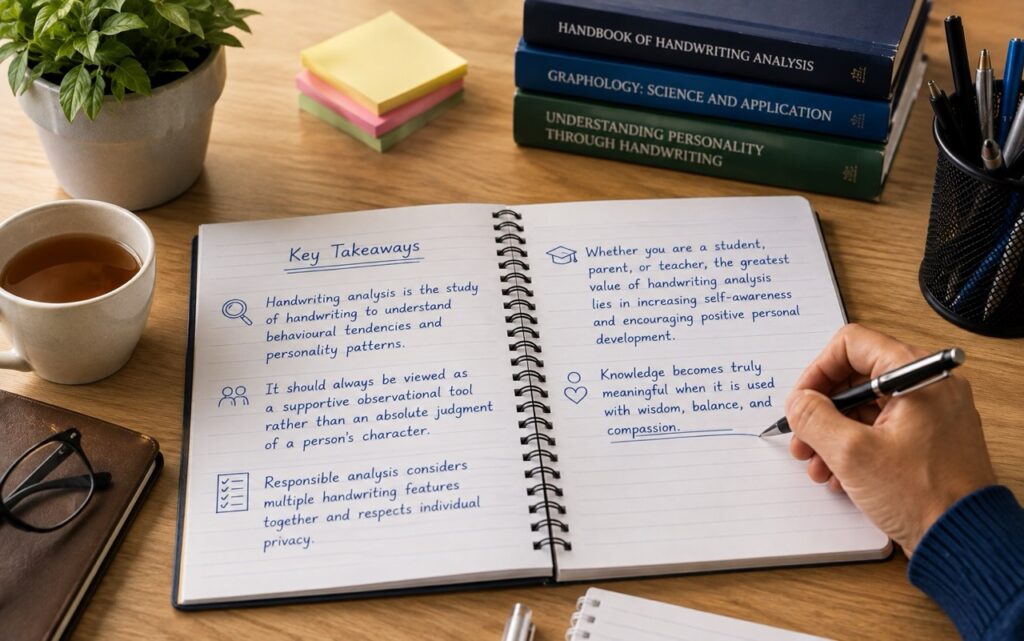 HANDBOOK OF HANDWRITING ANALYSIS
GRAPHOLOGY: SCIENCE AND APPLICATION
UNDERSTANDING PERSONALITY
THROUGH HANDWRITING
Key Takeaways
Handwriting analysis is the study
of handwriting to understand
behavioural tendencies and
personality patterns.
It should always be viewed as
a supportive observational tool
rather than an absolute judgment
of a person's character.
Responsible analysis considers
multiple handwriting features
together and respects individual
privacy.
Whether you are a student,
parent, or teacher, the greatest
value of handwriting analysis
lies in increasing self-awareness
and encouraging positive personal
development.
Knowledge becomes truly
meaningful when it is used
with wisdom, balance, and
compassion.